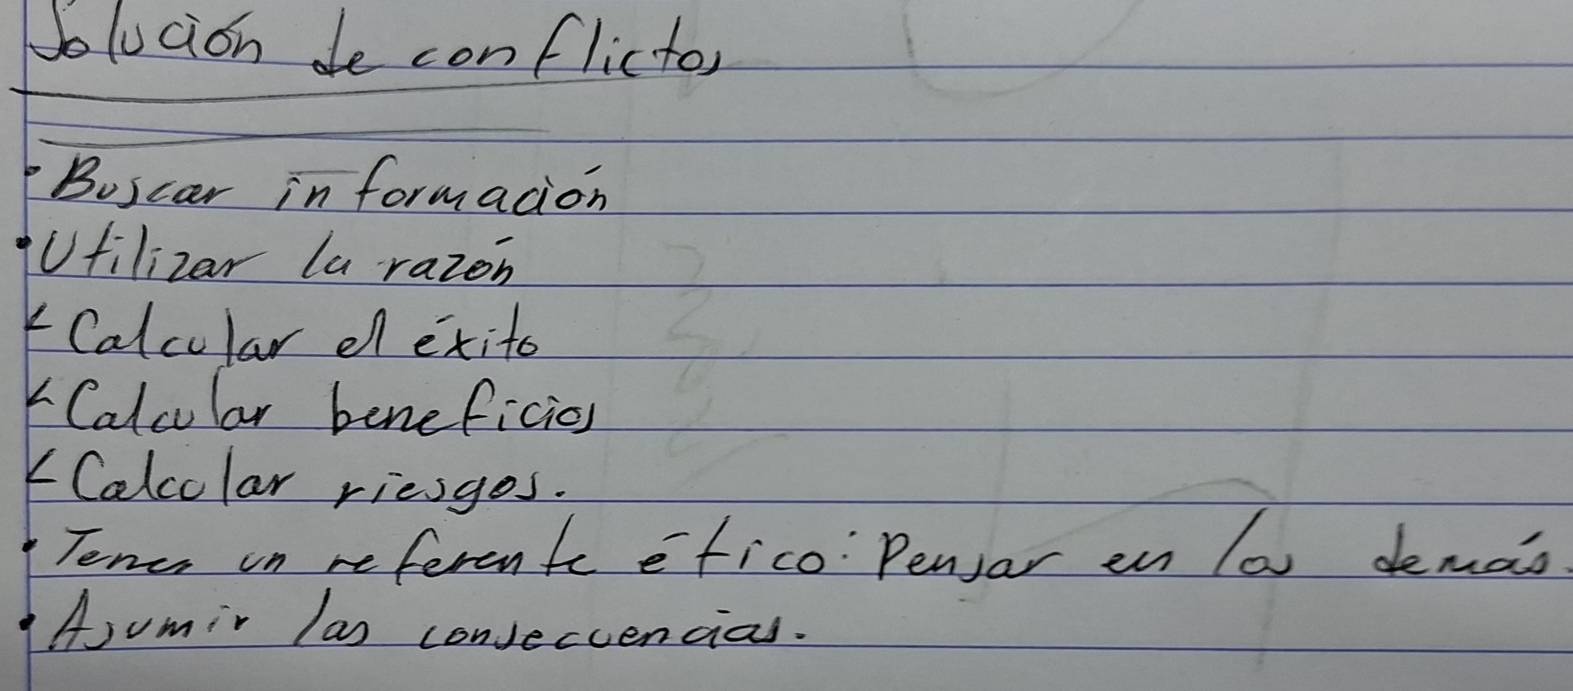 Solución de conflictos
• Buscar información
• Utilizar la razón
- Calcular el éxito
- Calcular beneficios
- Calcular riesgos.
• Tener un referente ético: Pensar en los demás.
• Asumir las consecuencias.